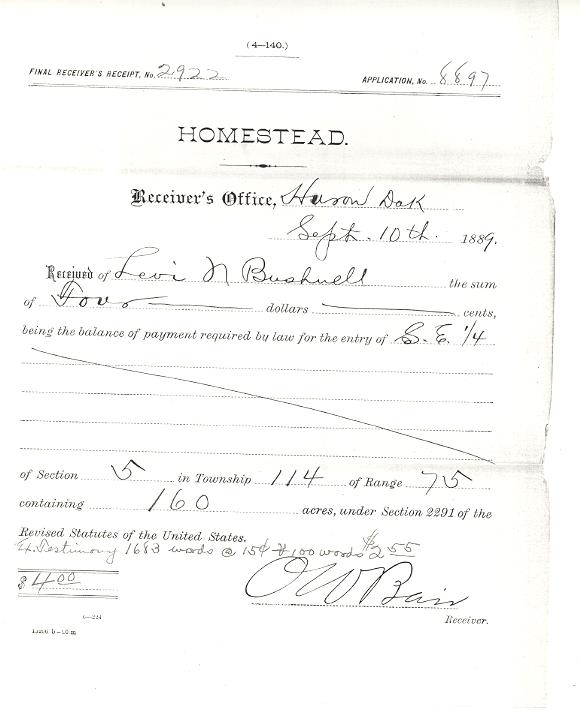 (4—140.)
FINAL RECEIVER'S RECEIPT, No. 2922 APPLICATION, No. 8897
HOMESTEAD.
Receiver's Office, Huron Dak
Sept. 10th. 1889.
Received of Levi N Bushnell the sum
of Four dollars cents,
being the balance of payment required by law for the entry of S. E. 1/4
of Section 5 in Township 114 of Range 75
containing 160 acres, under Section 2291 of the
Revised Statutes of the United States.
Ex. Testimony 1683 words @ 15¢ 100 words $2.55
$4.00 O W Bair
Receiver.
6—224